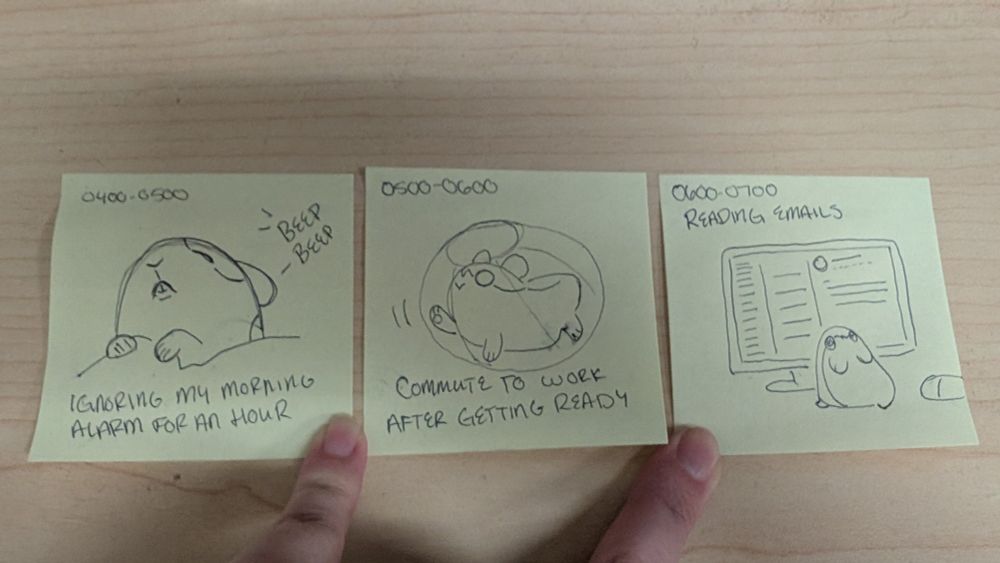 0400-0500
BEEP
BEEP
IGNORING MY MORNING
ALARM FOR AN HOUR
0500-0600
COMMUTE TO WORK
AFTER GETTING READY
0600-0700
READING EMAILS